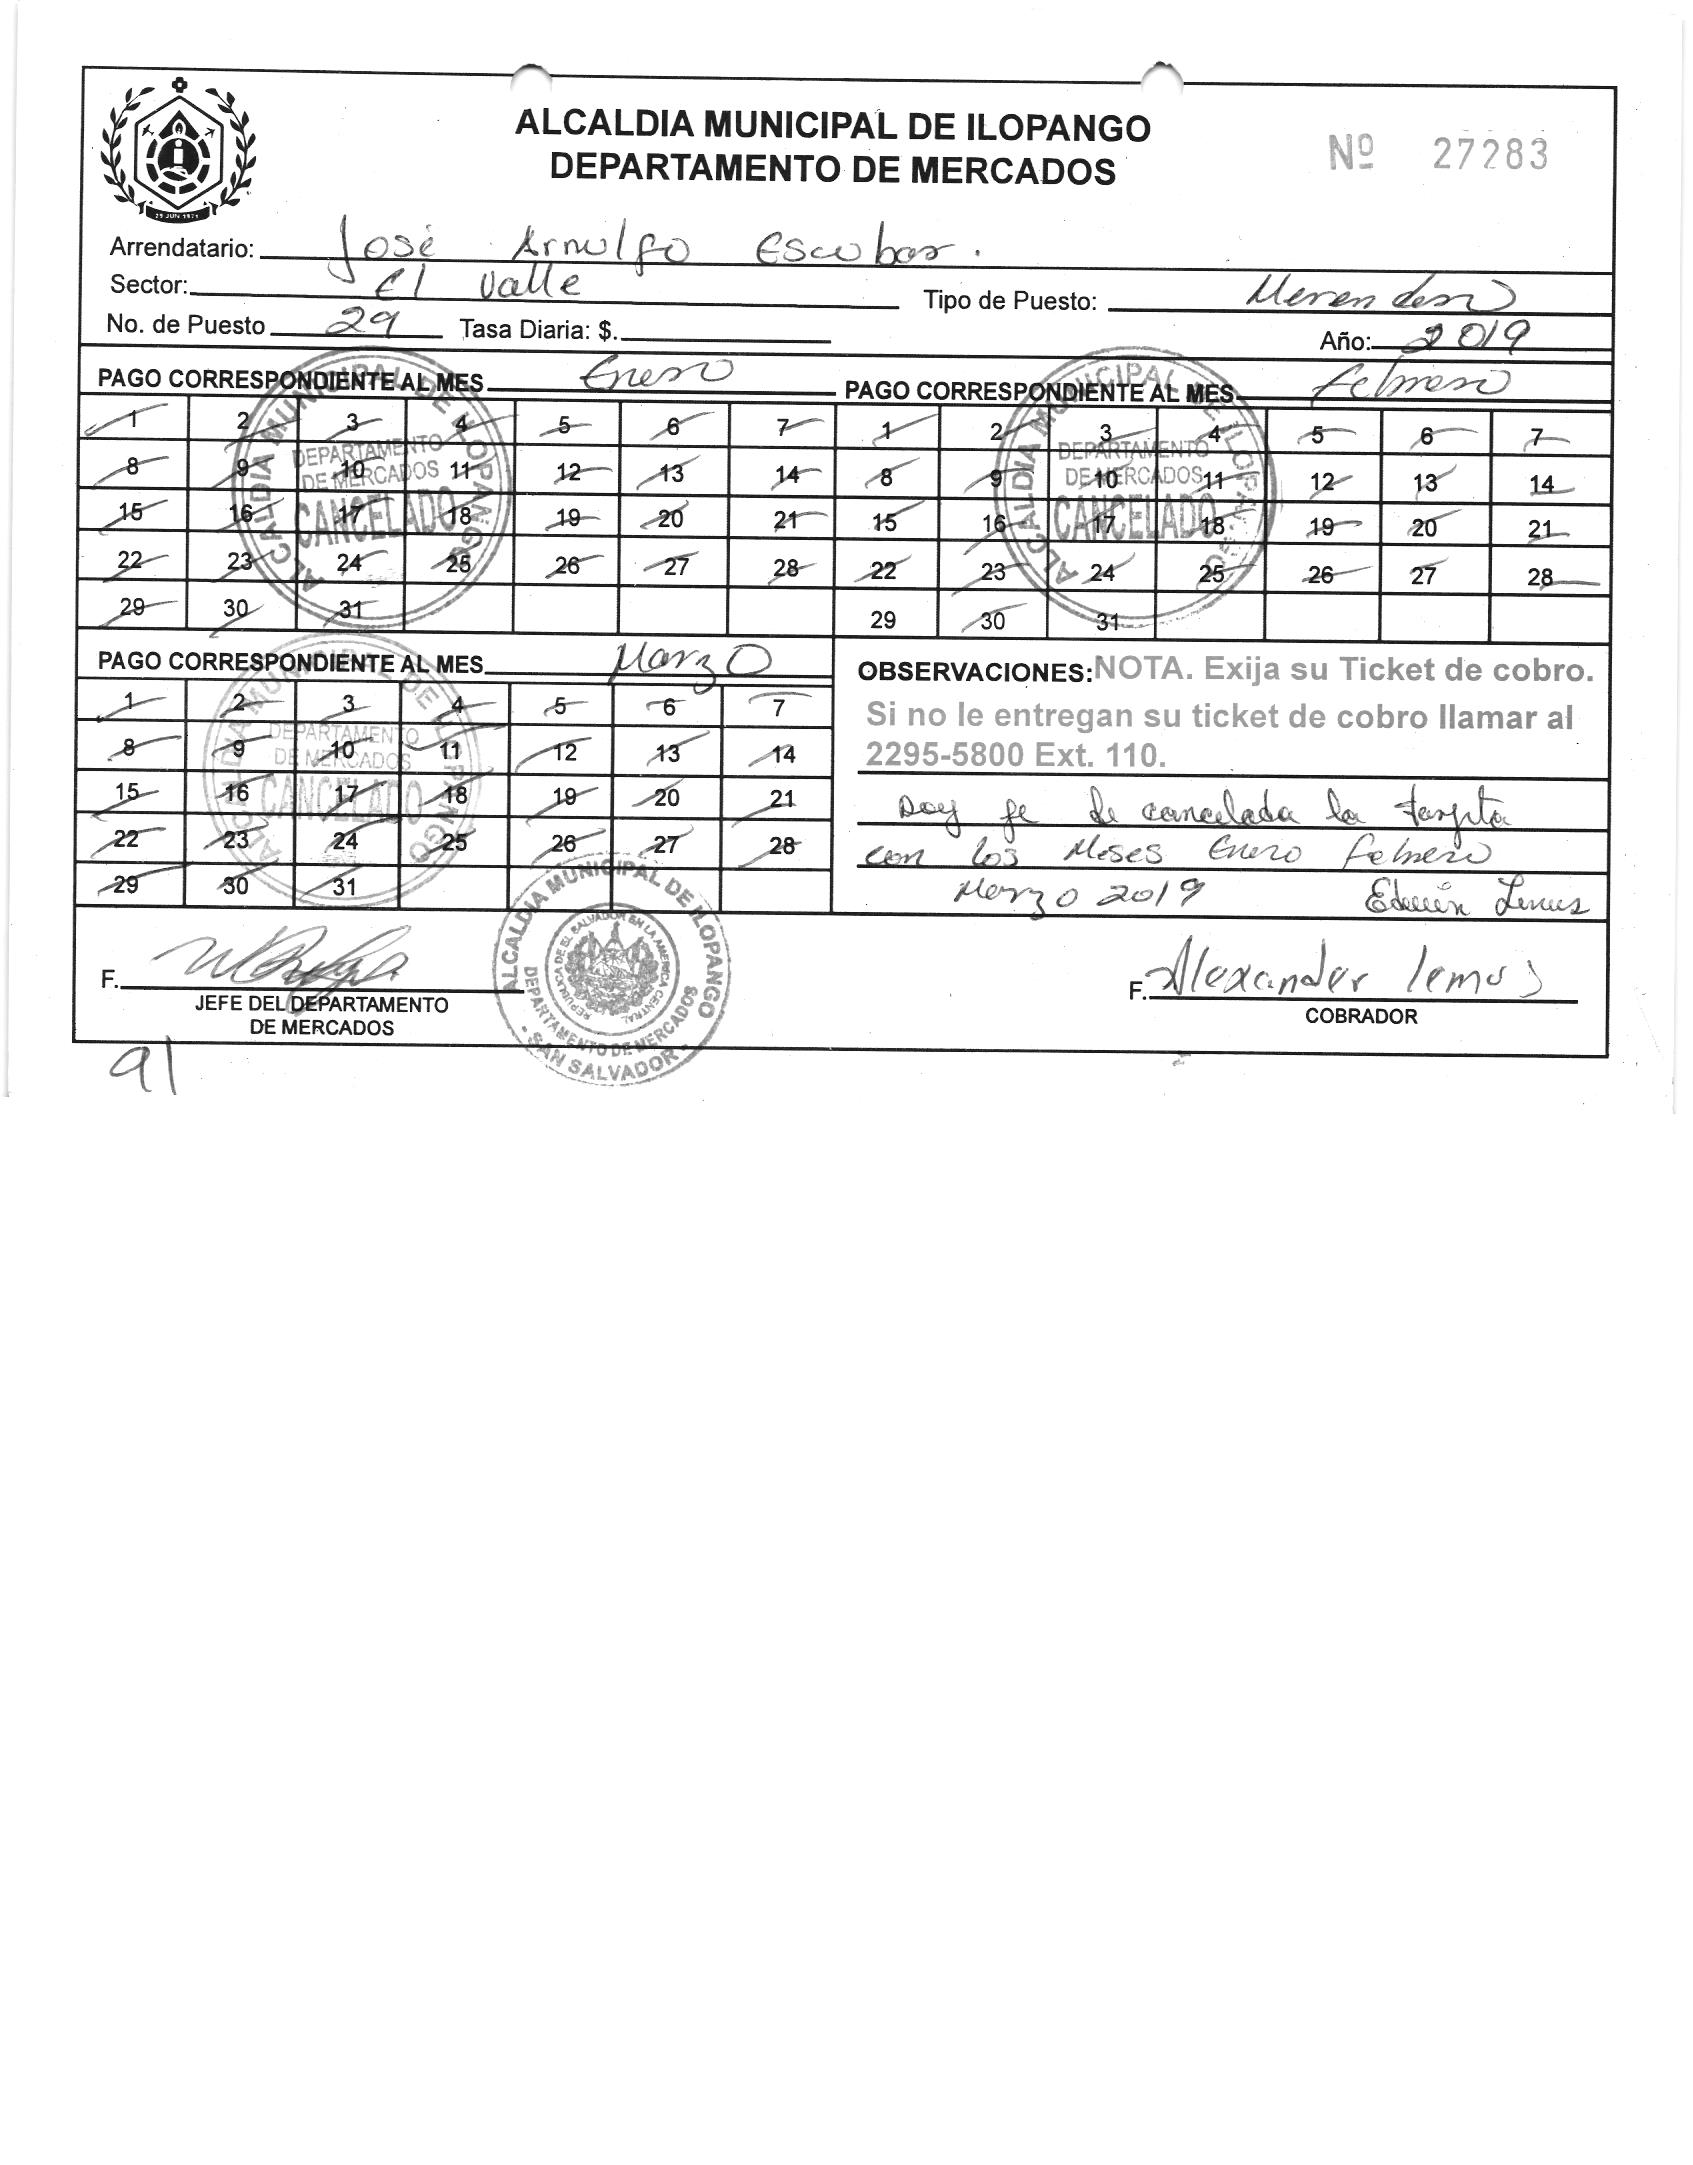 ALCALDIA MUNICIPAL DE ILOPANGO
DEPARTAMENTO DE MERCADOS
Nº 27283
29 JUN 1971
Arrendatario: José Arnulfo Escobar.
Sector: El Valle Tipo de Puesto: Merendero
No. de Puesto 29 Tasa Diaria: $. Año: 2019
PAGO CORRESPONDIENTE AL MES Enero PAGO CORRESPONDIENTE AL MES Febrero
1 2 3 4 5 6 7 1 2 3 4 5 6 7
8 9 10 11 12 13 14 8 9 10 11 12 13 14
15 16 17 18 19 20 21 15 16 17 18 19 20 21
22 23 24 25 26 27 28 22 23 24 25 26 27 28
29 30 31 29 30 31
ALCALDIA MUNICIPAL DE ILOPANGO
DEPARTAMENTO
DE MERCADOS
CANCELADO
ALCALDIA MUNICIPAL DE ILOPANGO
DEPARTAMENTO
DE MERCADOS
CANCELADO
PAGO CORRESPONDIENTE AL MES Marzo
1 2 3 4 5 6 7
8 9 10 11 12 13 14
15 16 17 18 19 20 21
22 23 24 25 26 27 28
29 30 31
ALCALDIA MUNICIPAL DE ILOPANGO
DEPARTAMENTO
DE MERCADOS
CANCELADO
OBSERVACIONES: NOTA. Exija su Ticket de cobro.
Si no le entregan su ticket de cobro llamar al
2295-5800 Ext. 110.
Doy fe de cancelada la tarjeta
con los Meses Enero Febrero
Marzo 2019 Edwin Lemus
F.
JEFE DEL DEPARTAMENTO
DE MERCADOS
ALCALDIA MUNICIPAL DE ILOPANGO
REPUBLICA DE EL SALVADOR EN LA AMERICA CENTRAL
DEPARTAMENTO DE MERCADOS
- SAN SALVADOR -
F. Alexander lemus
COBRADOR
91